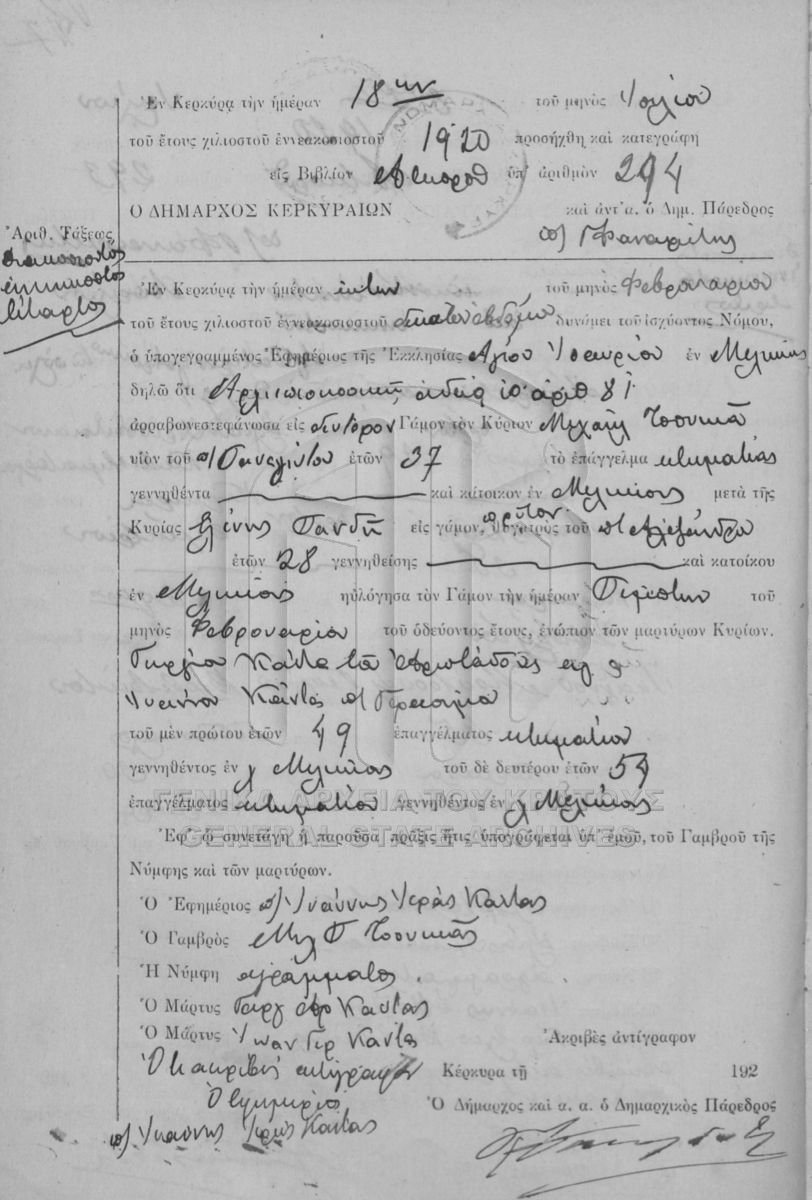 Ἐν Κερκύρᾳ τὴν ἡμέραν 18ην τοῦ μηνὸς Ἰουλίου
τοῦ ἔτους χιλιοστοῦ ἐννεακοσιοστοῦ 1920 προσήχθη καὶ κατεγράφη
εἰς Βιβλίον ὑπ' ἀριθμὸν 294
Ο ΔΗΜΑΡΧΟΣ ΚΕΡΚΥΡΑΙΩΝ καὶ ἀντ' α. ὁ Δημ. Πάρεδρος
Ἀριθ. Τάξεως
διακοσιοστὸς
ἐνενηκοστὸς
τέταρτος
Ἐν Κερκύρᾳ τὴν ἡμέραν ἕκτην τοῦ μηνὸς Φεβρουαρίου
τοῦ ἔτους χιλιοστοῦ ἐννεακοσιοστοῦ δυνάμει τοῦ ἰσχύοντος Νόμου,
ὁ ὑπογεγραμμένος Ἐφημέριος τῆς Ἐκκλησίας Ἁγίου ἐν Μελικίας
δηλῶ ὅτι ἀδείᾳ ἀριθ 81
ἀρραβωνεστεφάνωσα εἰς δεύτερον Γάμον τὸν Κύριον Μιχαὴλ Τσουκᾶ
υἱὸν τοῦ ἐτῶν 37 τὸ ἐπάγγελμα κτηματίας
γεννηθέντα καὶ κάτοικον ἐν Μελικίας μετὰ τῆς
Κυρίας Ἑλένης Πανδῆ εἰς γάμον, πρῶτον θυγατρὸς τοῦ π Ἀλεξάνδρου
ἐτῶν 28 γεννηθείσης καὶ κατοίκου
ἐν Μελικίας ηὐλόγησα τὸν Γάμον τὴν ἡμέραν Πέμπτην τοῦ
μηνὸς Φεβρουαρίου τοῦ ὁδεύοντος ἔτους, ἐνώπιον τῶν μαρτύρων Κυρίων.
Γεωργίου Κάντα τοῦ
Ἰωάννου Κάντας π Γερασίμου
τοῦ μὲν πρώτου ἐτῶν 49 ἐπαγγέλματος κτηματίου
γεννηθέντος ἐν Μελικίας τοῦ δὲ δευτέρου ἐτῶν 54
ἐπαγγέλματος κτηματίου γεννηθέντος ἐν Μελικίας
ΓΕΝΙΚΑ ΑΡΧΕΙΑ ΤΟΥ ΚΡΑΤΟΥΣ
GENERAL STATE ARCHIVES
Ἐφ' ᾧ συνετάγη ἡ παροῦσα πρᾶξις ἥτις ὑπογράφεται ὑπ' ἐμοῦ, τοῦ Γαμβροῦ τῆς
Νύμφης καὶ τῶν μαρτύρων.
Ὁ Ἐφημέριος Ἰωάννης Ἱερεὺς Κάντας
Ὁ Γαμβρὸς Μιχ Π Τσουκᾶς
Ἡ Νύμφη ἀγράμματος
Ὁ Μάρτυς Γεωργ Κάντας
Ὁ Μάρτυς Ἰωαν Γερ Κάντας Ἀκριβὲς ἀντίγραφον
Κέρκυρα τῇ 192
Ὁ Ἐφημέριος Ὁ Δήμαρχος καὶ α. α. ὁ Δημαρχικὸς Πάρεδρος
Ἰωάννης Ἱερεὺς Κάντας